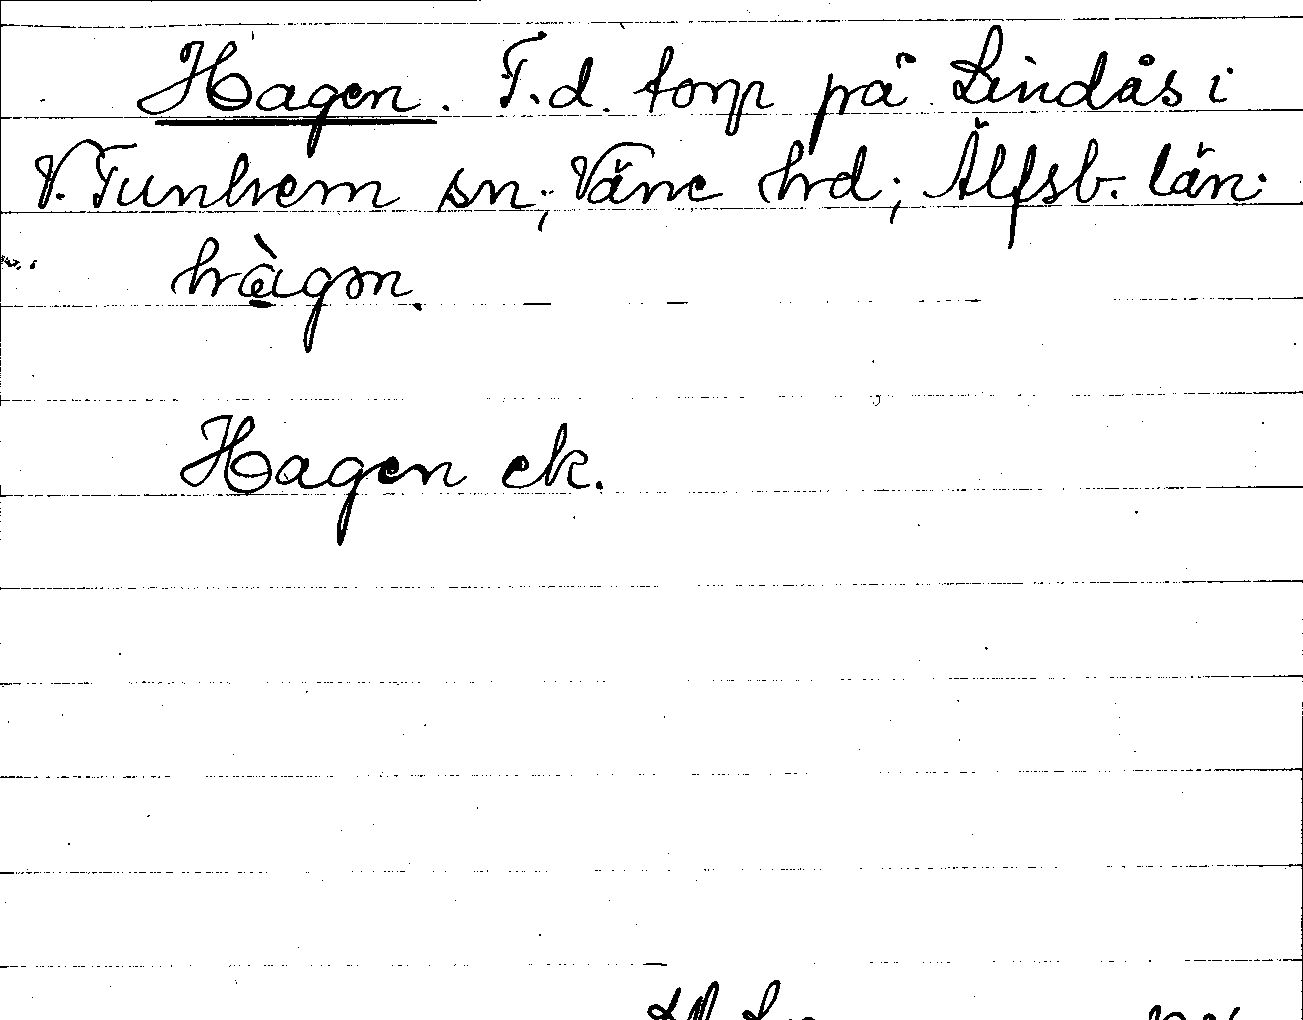 Hagen. F.d. torp på Lindås i
V. Tunhem sn; Väne hrd; Älfsb. län.
hàgən.
Hagen ek.